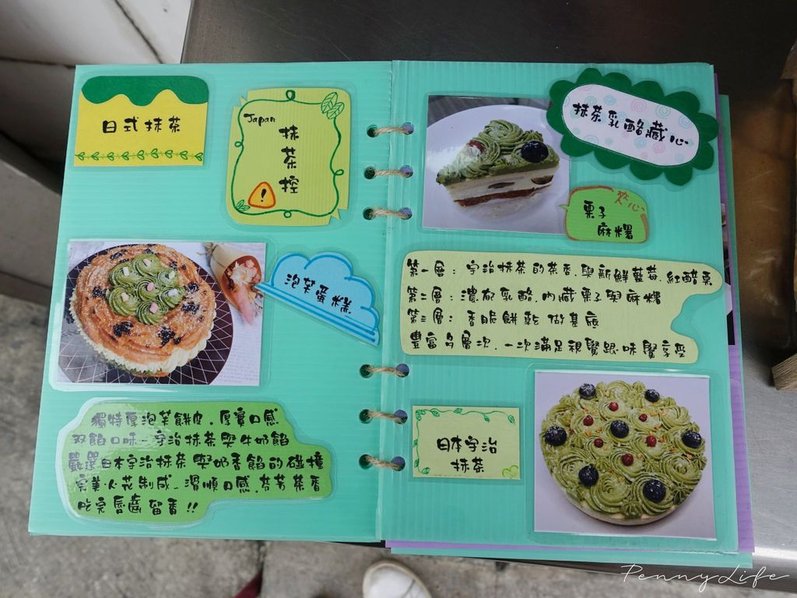 日式抹茶
Japan
抹茶控
!
泡芙蛋糕
獨特厚泡芙餅皮．厚實口感
双餡口味－宇治抹茶與牛奶餡
嚴選日本宇治抹茶與奶香餡的碰撞
完美人花制成．滑順口感．芬芳茶香
吃完唇齒留香!!
抹茶乳酪藏心
夾心
栗子
麻糬
第一層：宇治抹茶的茶香．與新鮮藍莓．紅醋栗
第二層：濃郁乳酪．內藏栗子與麻糬
第三層：香脆餅乾做基底
豐富多層次．一次滿足視覺跟味覺享受
日本宇治
抹茶
PennyLife